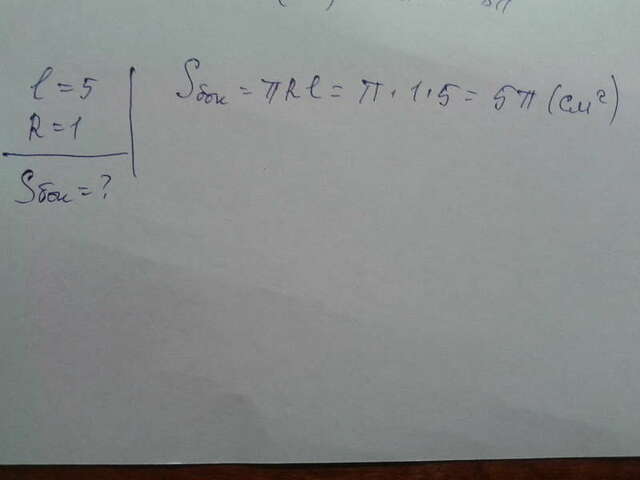 l = 5
R = 1
Sбок = ?
Sбок = πRl = π · 1 · 5 = 5π (см²)